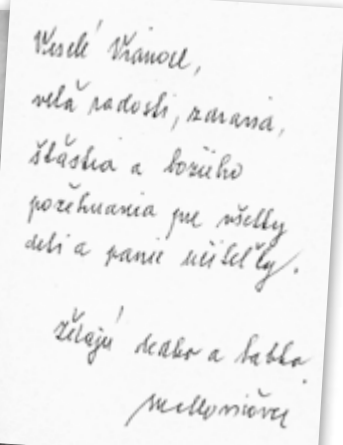 Veselé Vianoce,
veľa radosti, zdravia,
šťastia a božieho
požehnania pre všetky
deti a panie učiteľky.
želajú dedko a babka